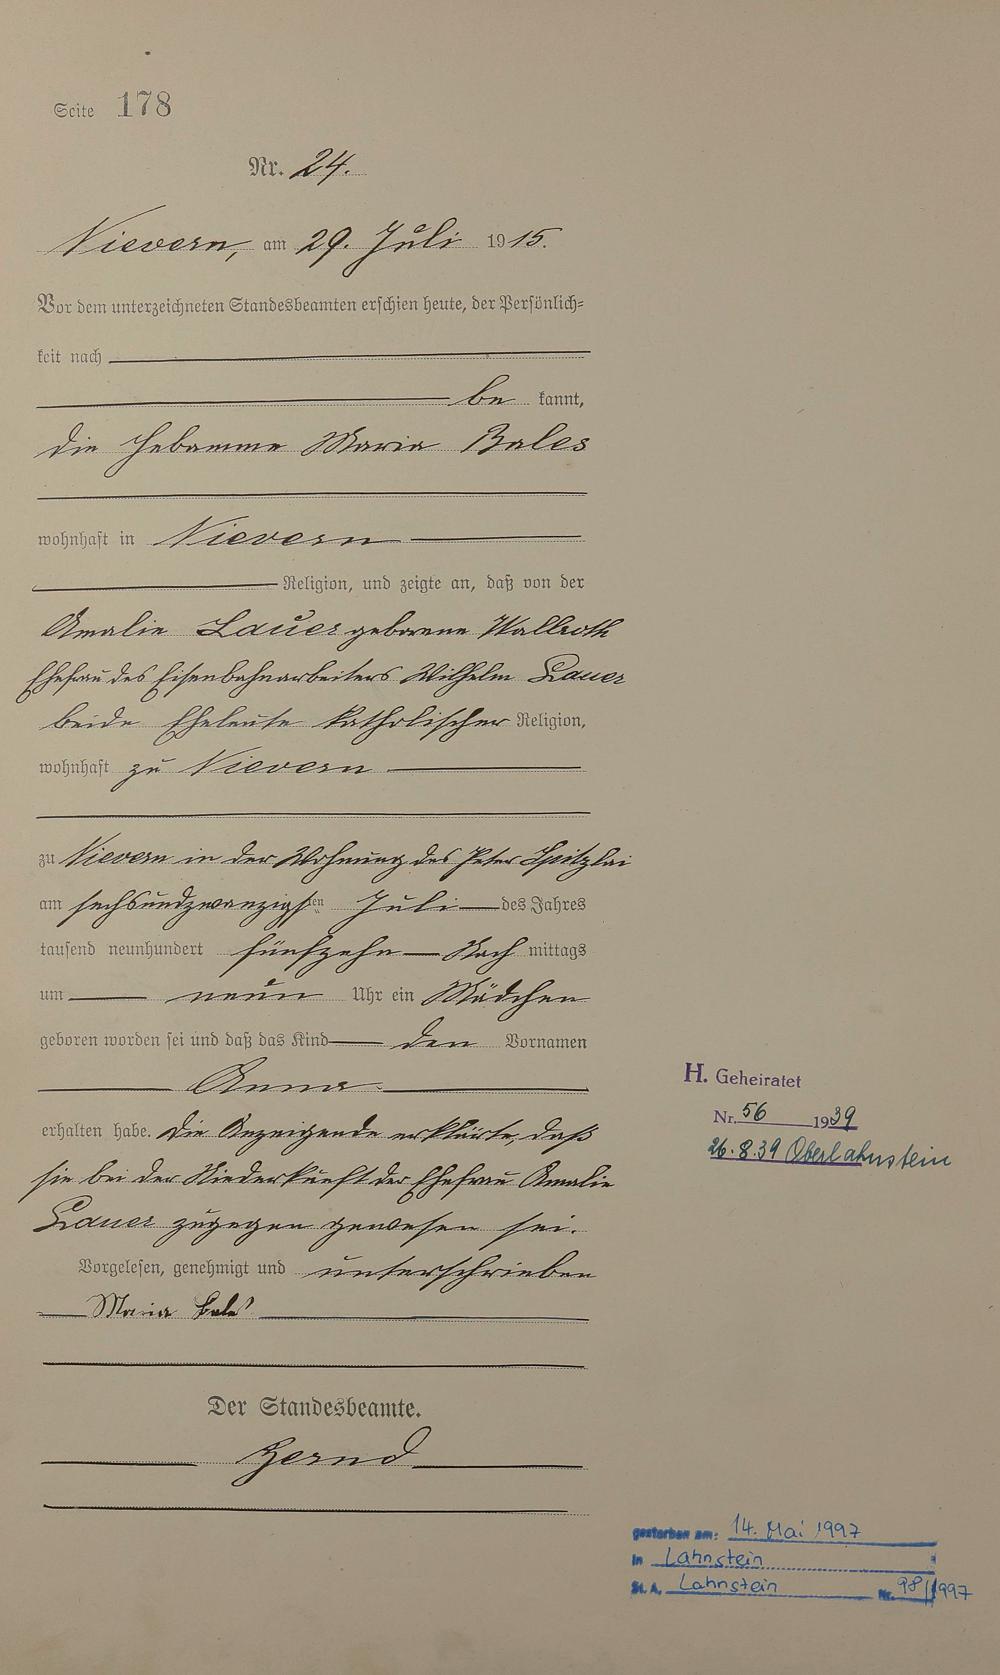 Seite 178
Nr. 24.
Nievern, am 29. Juli 1915.
Vor dem unterzeichneten Standesbeamten erschien heute, der Persönlich=
keit nach
be kannt,
die Hebamme Maria Bales
wohnhaft in Nievern
Religion, und zeigte an, daß von der
Amalie Lauer geborene Wallroth
Ehefrau des Eisenbahnarbeiters Wilhelm Lauer
beide Eheleute katholischer Religion,
wohnhaft zu Nievern
zu Nievern in der Wohnung des Peter Spitzlai
am sechsundzwanzigsten Juli des Jahres
tausend neunhundert fünfzehn Nach mittags
um neun Uhr ein Mädchen
geboren worden sei und daß das Kind den Vornamen
Anna
erhalten habe. Die Anzeigende erklärte, daß
sie bei der Niederkunft der Ehefrau Amalie
Lauer zugegen gewesen sei.
Vorgelesen, genehmigt und unterschrieben
Maria Bales
Der Standesbeamte.
H. Geheiratet
Nr. 56 1939
26.8.39 Oberlahnstein
gestorben am: 14. Mai 1997
in Lahnstein
St. A. Lahnstein Nr. 98/1997